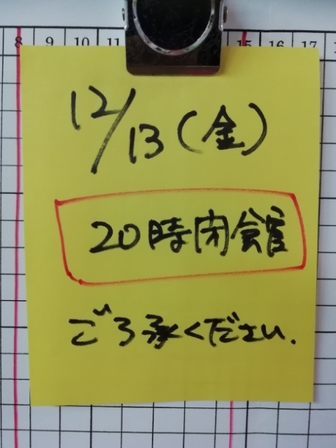 8 9 10 11 15 16 17 18
12/13(金)
20時閉館
ご了承ください.